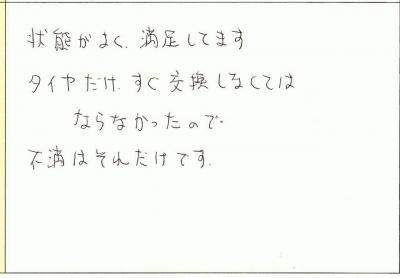 状態がよく、満足してます
タイヤだけ、すぐ交換しなくては
ならなかったので、
不満はそれだけです.